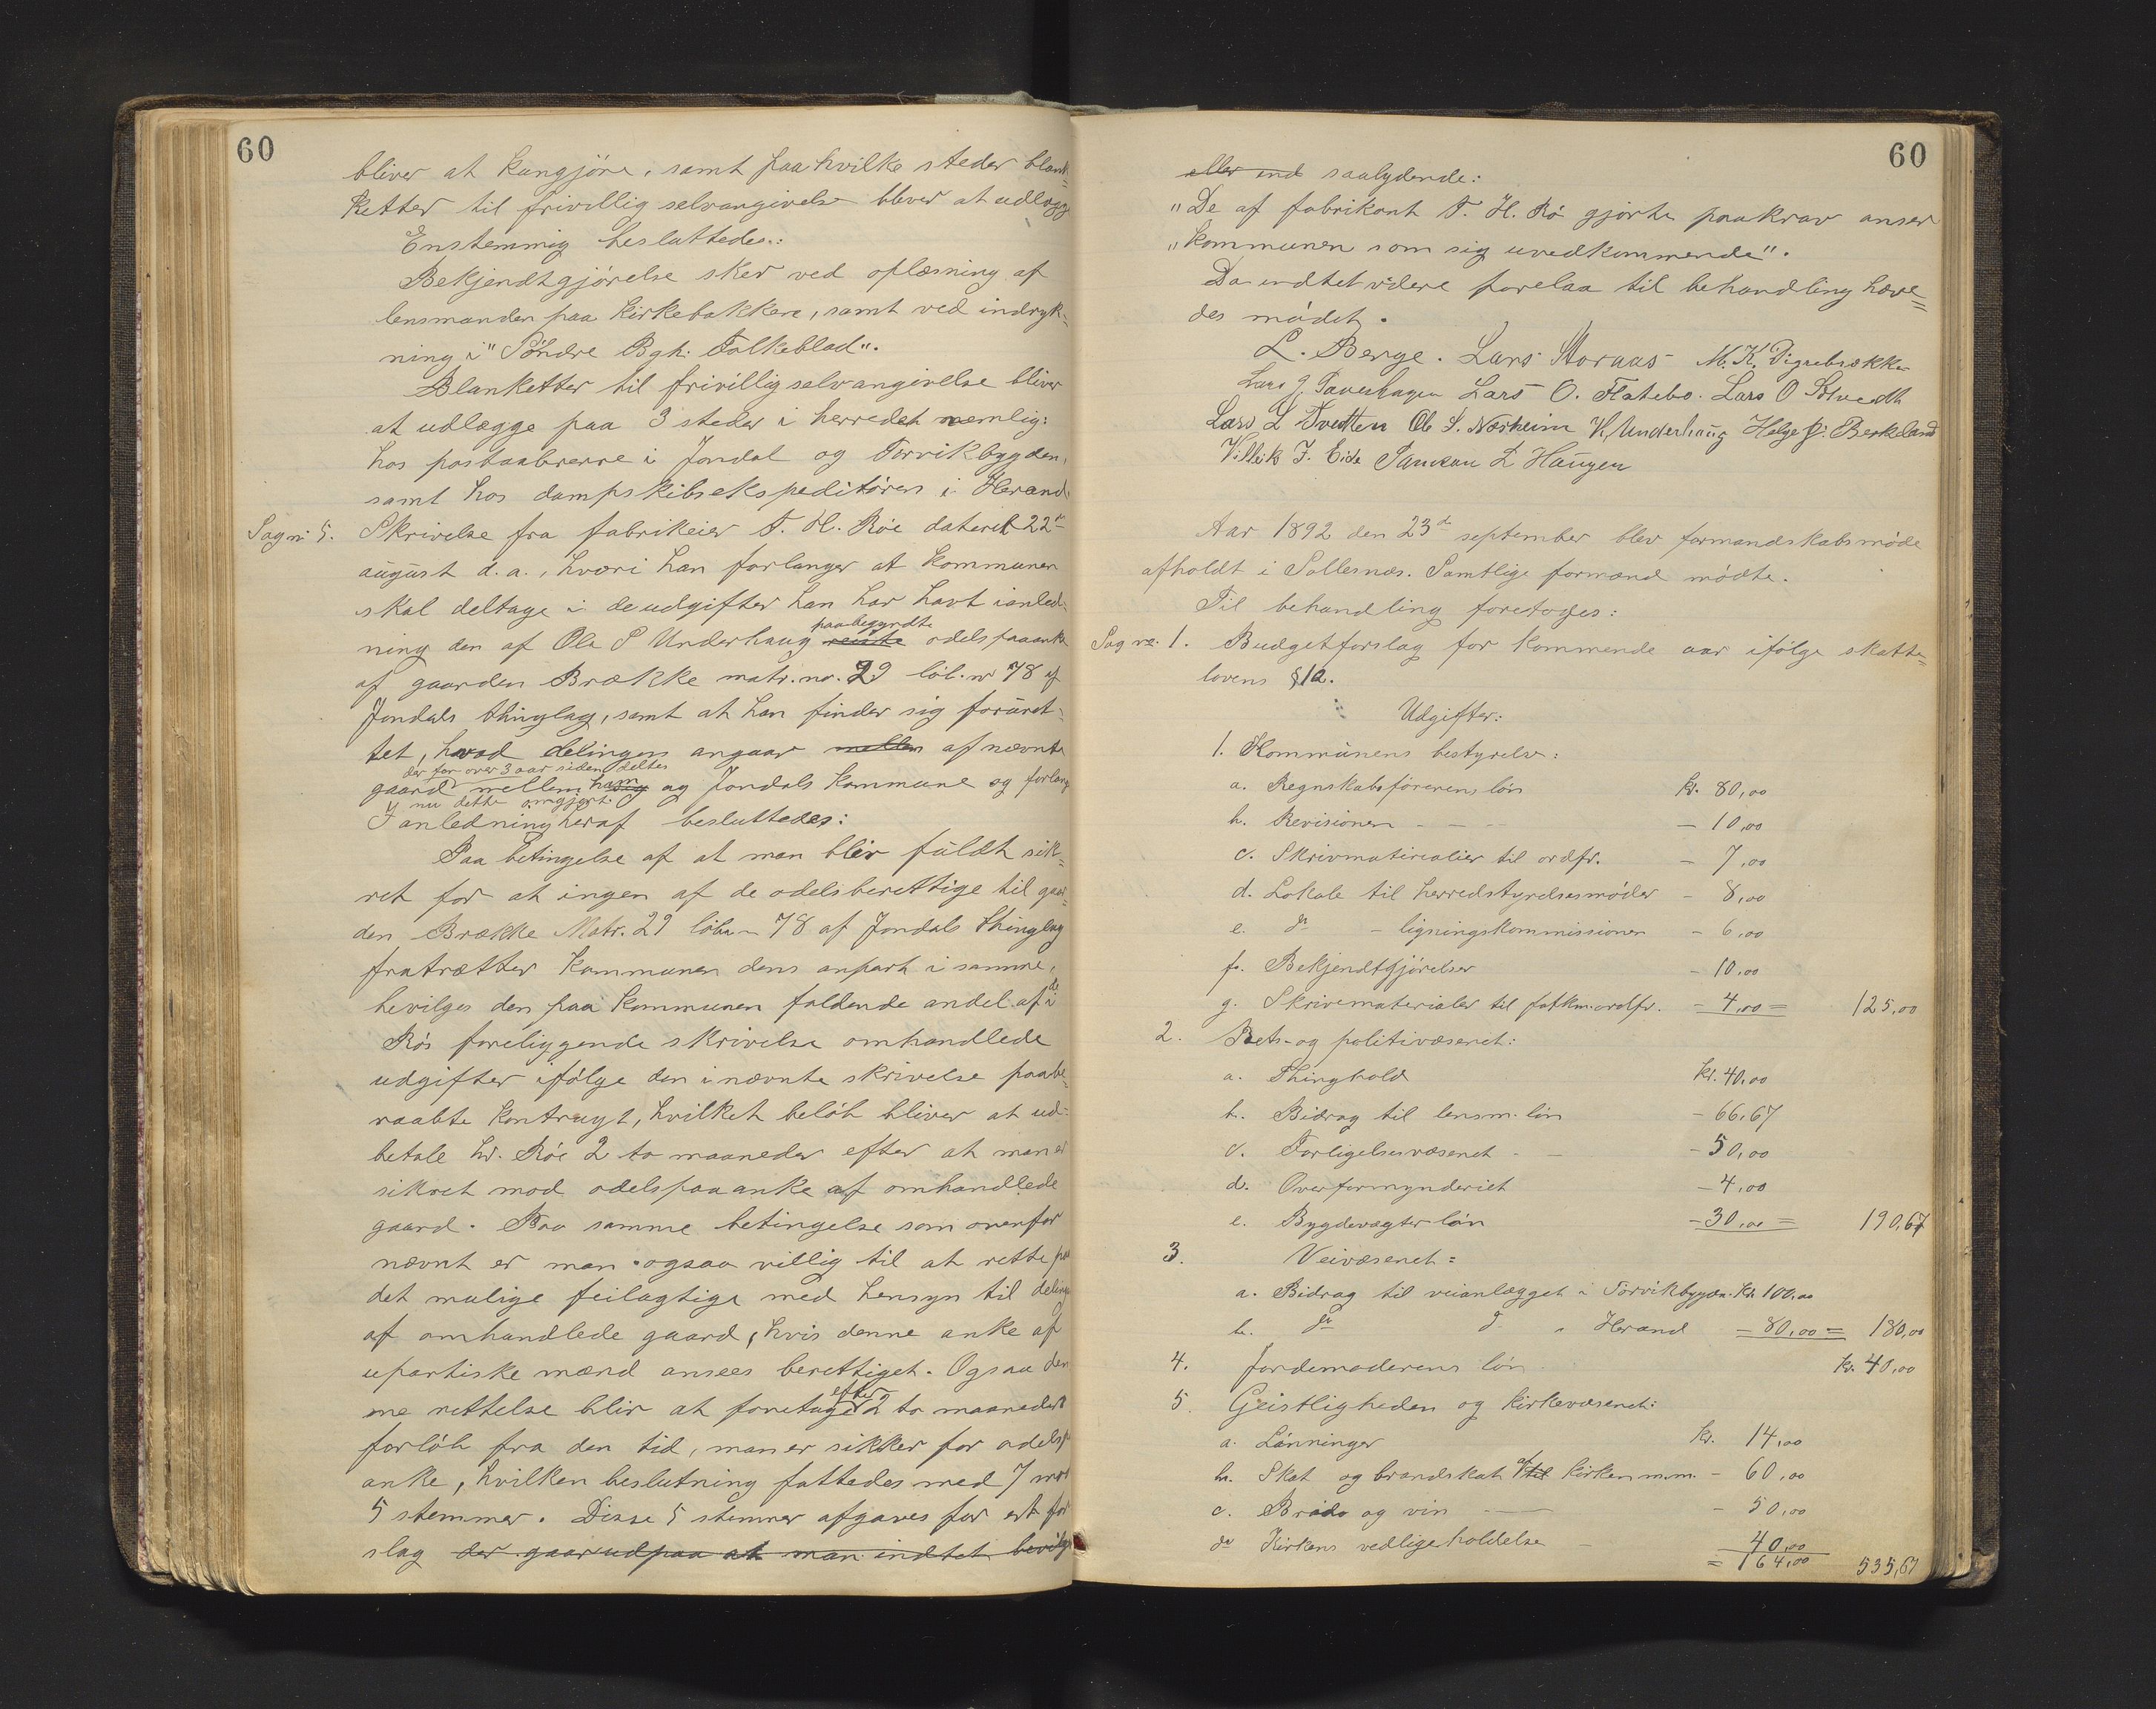 60
bliver at kungjöre, samt paa hvilke steder blan=
ketter til frivillig selvangivelse blever at udlægge
Enstemmig besluttedes:
Bekjendtgjörelse sker ved oplæsning af
lensmanden paa kirkebakkene, samt ved indryk=
ning i "Söndre Bgh. Folkeblad".
Blanketter til frivillig selvangivelse bliver
at udlægge paa 3 steder i herredet nemlig:
hos postaabnerne i Jondal og Torvikbygden,
samt hos dampskibsekspeditören i Herand.
Sag nr. 5. Skrivelse fra fabrikeier T. H. Röe dateret 22de
august d. a., hvori han forlanger at kommunen
skal deltage i de udgifter han har havt ianled=
paabegyndte
ning den af Ole P Underhaug reiste odelspaaanke
af gaarden Brække matr. no. 29 löb. nr 78 af
Jondals thinglag, samt at han finder sig foruret=
tet, hvad delingen angaar mellem af nævnte
der for over 3 aar siden deltes
gaard mellem ham og Jondals kommune og forlang
nu dette omgjort.
I anledning heraf besluttedes:
Paa betingelse af at man blir fuldt sik=
ret for at ingen af de odelsberettige til gaar=
den Brække Matr. 29 löbn 78 af Jondals thinglag
fratrætter kommunen dens anpart i samme,
bevilges den paa kommunen faldende andel af de i
Rös foreliggende skrivelse omhandlede
udgifter ifölge den i nævnte skrivelse paabe=
raabte kontragt, hvilket belöb bliver at ud=
betale hr. Röe 2 to maaneder efter at man er
sikret mod odelspaaanke af omhandlede
gaard. Paa samme betingelse som ovenfor
nævnt er man ogsaa villig til at rette paa
det mulige feilagtige med hensyn til deling
af omhandlede gaard, hvis denne anke af
upartiske mænd ansees berettiget. Ogsaa den
efter
me rettelse blir at foretage 2 to maaneders
forlöb fra den tid, man er sikker for odelsp
anke, hvilken beslutning fattedes med 7 mod
5 stemmer. Disse 5 stemmer afgaves for et for
slag der gaar ud paa at man indtet bevilge
60
eller ind saalydende:
"De af fabrikant T. H. Rö gjorte paakrav anser
"kommunen som sig uvedkommende".
Da indtet videre forelaa til behandling hæve=
des mödet.
L. Berge. Lars Storaas M. K. Digrebrække
Lars J. Lars O. Flatebö. Lars O Solvedt
Lars L Tvedten Ole S. Næsheim K. Underhaug Helge Berkeland
Villeik J. Eide Samson L Haugen
Aar 1892 den 23de september blev formandskabsmöde
afholdt i Sollesnæs. Samtlige formænd mödte.
Til behandling foretoges:
Sag nr. 1. Budgetforslag for kommende aar ifölge skatte=
lovens §12.
Udgifter:
1. Kommunens bestyrelse:
a. Regnskabsförerens lön kr. 80,00
b. Revisionen - - - - 10,00
c. Skrivmatirialier til ordfr. - 7,00
d. Lokale til herredstyrelsesmöder - 8,00
e. do - ligningskommissionen - 6,00
f. Bekjendtgjörelser - 10,00
g. Skrivematerialer til fatkm. ordfr. - 4,00 = 125,00
2. Rets- og politivæsenet:
a. Thinghold kr. 40,00
b. Bidrag til lensm. lön - 66,67
c. Forligelsesvæsenet - - - 50,00
d. Overformynderiet - 4,00
e. Bygdevægter lön - 30,00 = 190,67
3. Veivæsenet:
a. Bidrag til veianlægget i Torvikbygden. kr. 100,00
b. do do " Herand = 80,00 = 180,00
4. Jordemoderens lön kr. 40,00
5. Geistligheden og kirkevæsenet:
a. Lönninger kr. 14,00
b. Skat og brandskat af til kirken m.m. - 60,00
c. Bröd og vin - 50,00
d. Kirkens vedligeholdelse - 40,00
= 164,00 535,67